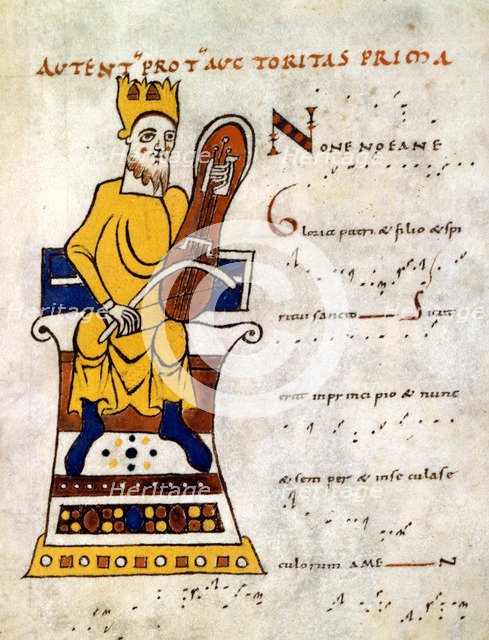 AUTENTᵘˢ PROTᵘˢ AUCTORITAS PRIMA
NONENOEANE
Gloria patri & filio & spi
ritui sancto Sicut
erat inprincipio & nunc
& sem per & inse culase
culorum AMEN
Heritage